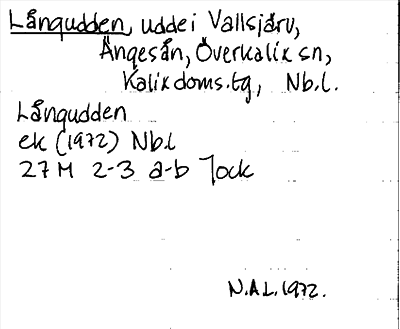 Långudden, udde i Vallsjärv,
Ängesån, Överkalix sn,
Kalix doms.tg, Nb.l.
Långudden
ek (1972) Nb.l
27 M 2-3 a-b Jock
N.A.L. 1972.